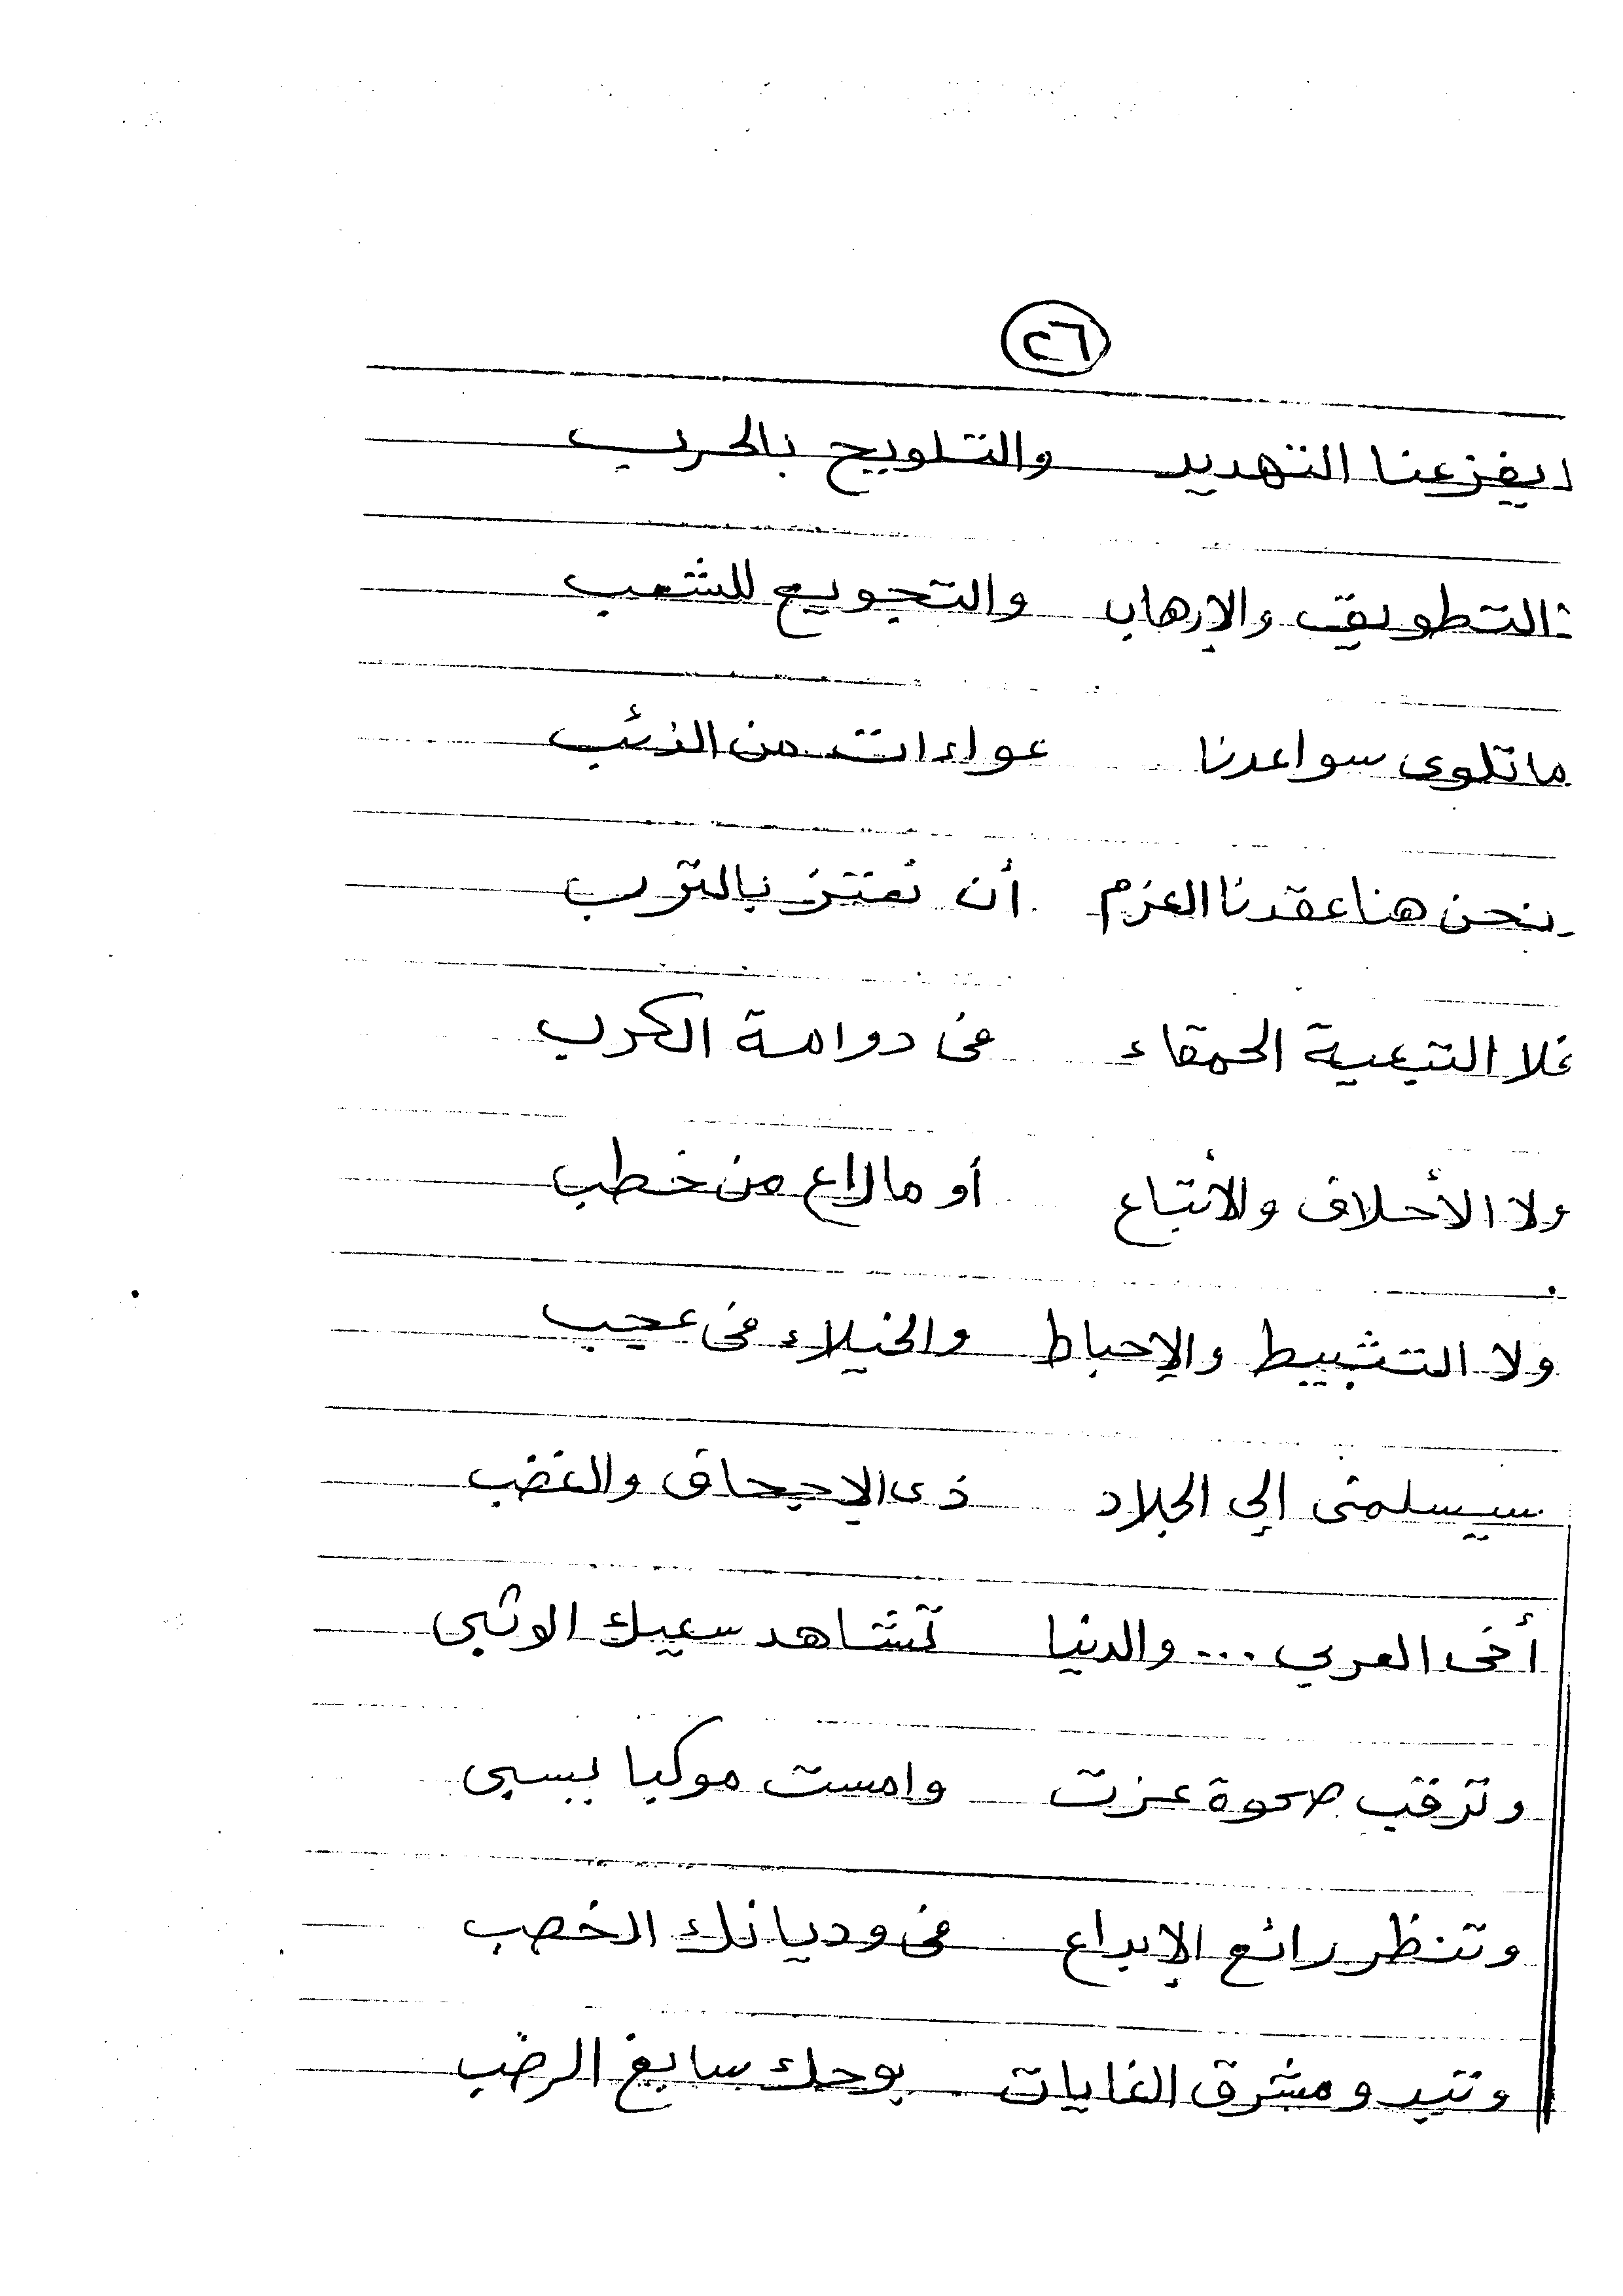 ٢٦
يفزعنا التهديد والتلويح بالحرب
التطويق والإرهاب والتجويع للشعب
ما تلوى سواعدنا عواءات من الذئب
نحن هنا عقدنا العزم أن نعتز بالترب
فلا التبعية الحمقاء فى دوامة الكرب
ولا الأحلاف والأتباع أو ما راع من خطب
ولا التثبيط والإحباط والخيلاء فى عجب
سيسلمنى إلى الجلاد ذى الإجحاف والغضب
أخى العربي ... والدنيا تشاهد سعيك الوثبى
وترقب صحوة عزت وامست موكبا يسبى
وتنظر رائع الإبداع فى وديانك الخصب
وتبدو مشرق الغايات بوحك سابغ الرضب